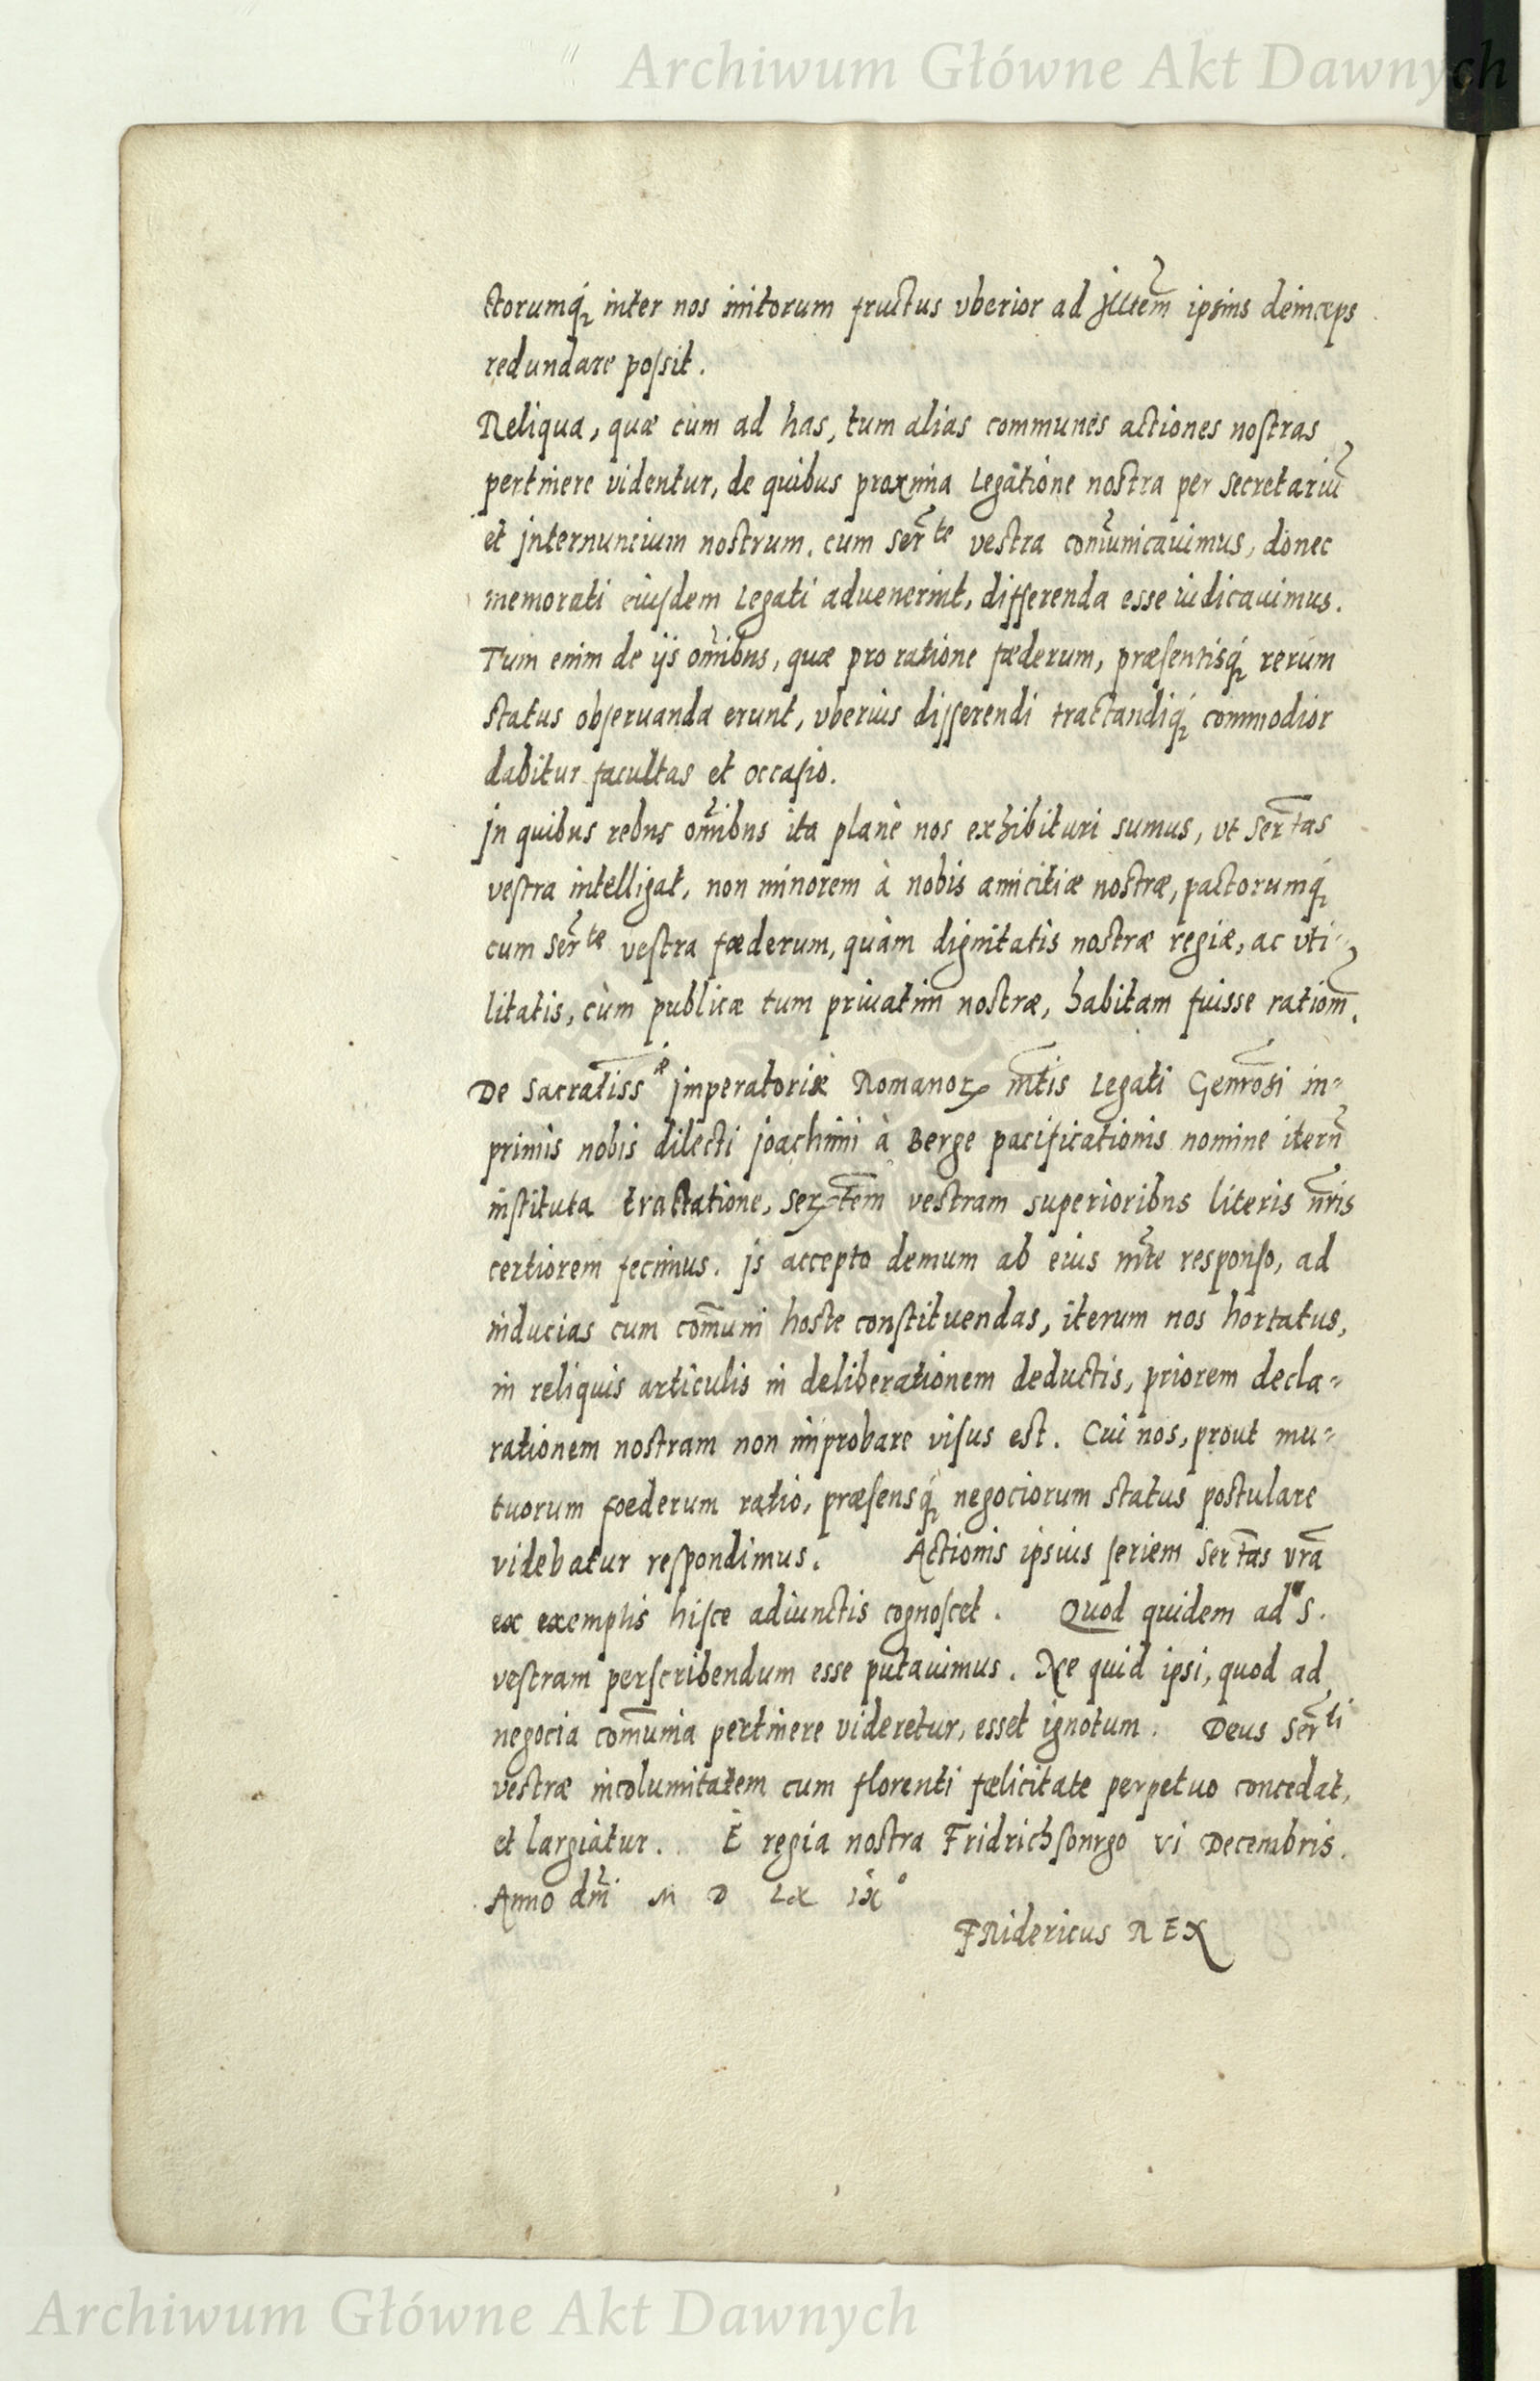 Archiwum Główne Akt Dawnych
ctorumq́ inter nos initorum fructus vberior ad ipsius deinceps
redundare possit.
Reliqua, quæ cùm ad has, tum alias communes actiones nostras
pertinere videntur, de quibus proxima Legatione nostra per secretariũ
et jnternuncium nostrum, cum Ser̃te vestra com̃unicauimus, donec
memorati eiusdem Legati aduenerint, differenda esse iudicauimus.
Tum enim de ijs om̃ibus, quæ pro ratione fœderum, præsentisq́ rerum
status obseruanda erunt, vberius disserendi tractandiq́ commodior
dabitur facultas et occasio.
Jn quibus rebus om̃ibus ita planè nos exhibituri sumus, vt Ser̃tas
vestra intelligat, non minorem à nobis amicitiæ nostræ, pactorumq́
cum Ser̃te vestra fœderum, quàm dignitatis nostræ regiæ, ac vti-
litatis, cùm publicæ tum priuatim nostræ, habitam fuisse ratiom̃.
De Sacratiss̃æ Jmperatoriæ Romanoꝝ m̃tis Legati Genr̃osi in-
primis nobis dilecti Joachimi à Berge pacificationis nomine iterũ
instituta tractatione, Ser̃tem vestram superioribus literis nr̃is
certiorem fecimus. Js accepto demum ab eius m̃te responso, ad
inducias cum com̃uni hoste constituendas, iterum nos hortatus,
in reliquis articulis in deliberationem deductis, priorem decla-
rationem nostram non improbare visus est. Cui nos, prout mu-
tuorum foederum ratio, præsensq́ negociorum status postulare
videbatur respondimus. Actionis ipsius seriem Ser̃tas vr̃a
ex exemplis hisce adiunctis cognoscet. Quod quidem ad S.
vestram perscribendum esse putauimus. Ne quid ipsi, quod ad
negocia com̃unia pertinere videretur, esset ignotum. Deus Ser̃ti
vestræ incolumitatem cum florenti fælicitate perpetuo concedat,
et largiatur. È regia nostra Fridrichsburgo vi Decembris.
Anno dm̃i M D LX ix°
FRidericus REX
Archiwum Główne Akt Dawnych